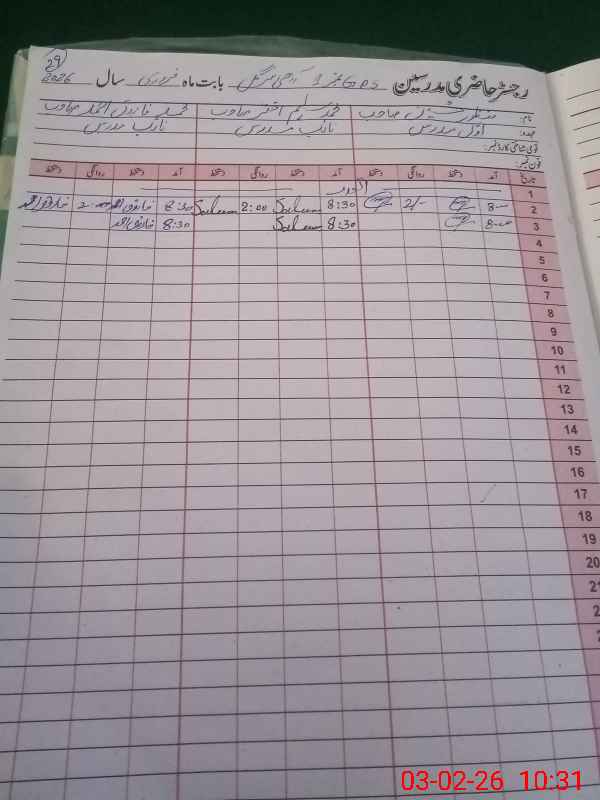 29
رجسٹر حاضری مدرسین GPS نمبر 1 بابت ماہ فروری سال 2026
نام: منظور صاحب محمد سلیم اختر صاحب محمد خالد احمد صاحب
عہدہ: اول مدرس نائب مدرس نائب مدرس
قومی شناختی کارڈ نمبر:
فون نمبر:
تاریخ آمد دستخط روانگی دستخط آمد دستخط روانگی دستخط آمد دستخط روانگی دستخط
1 اتوار
2 8-- 2/- 8:30 Saleem 2:00 Saleem 8:30 2:00
3 8-- 8:30 Saleem 8:30
4
5
6
7
8
9
10
11
12
13
14
15
16
17
18
19
20
03-02-26 10:31